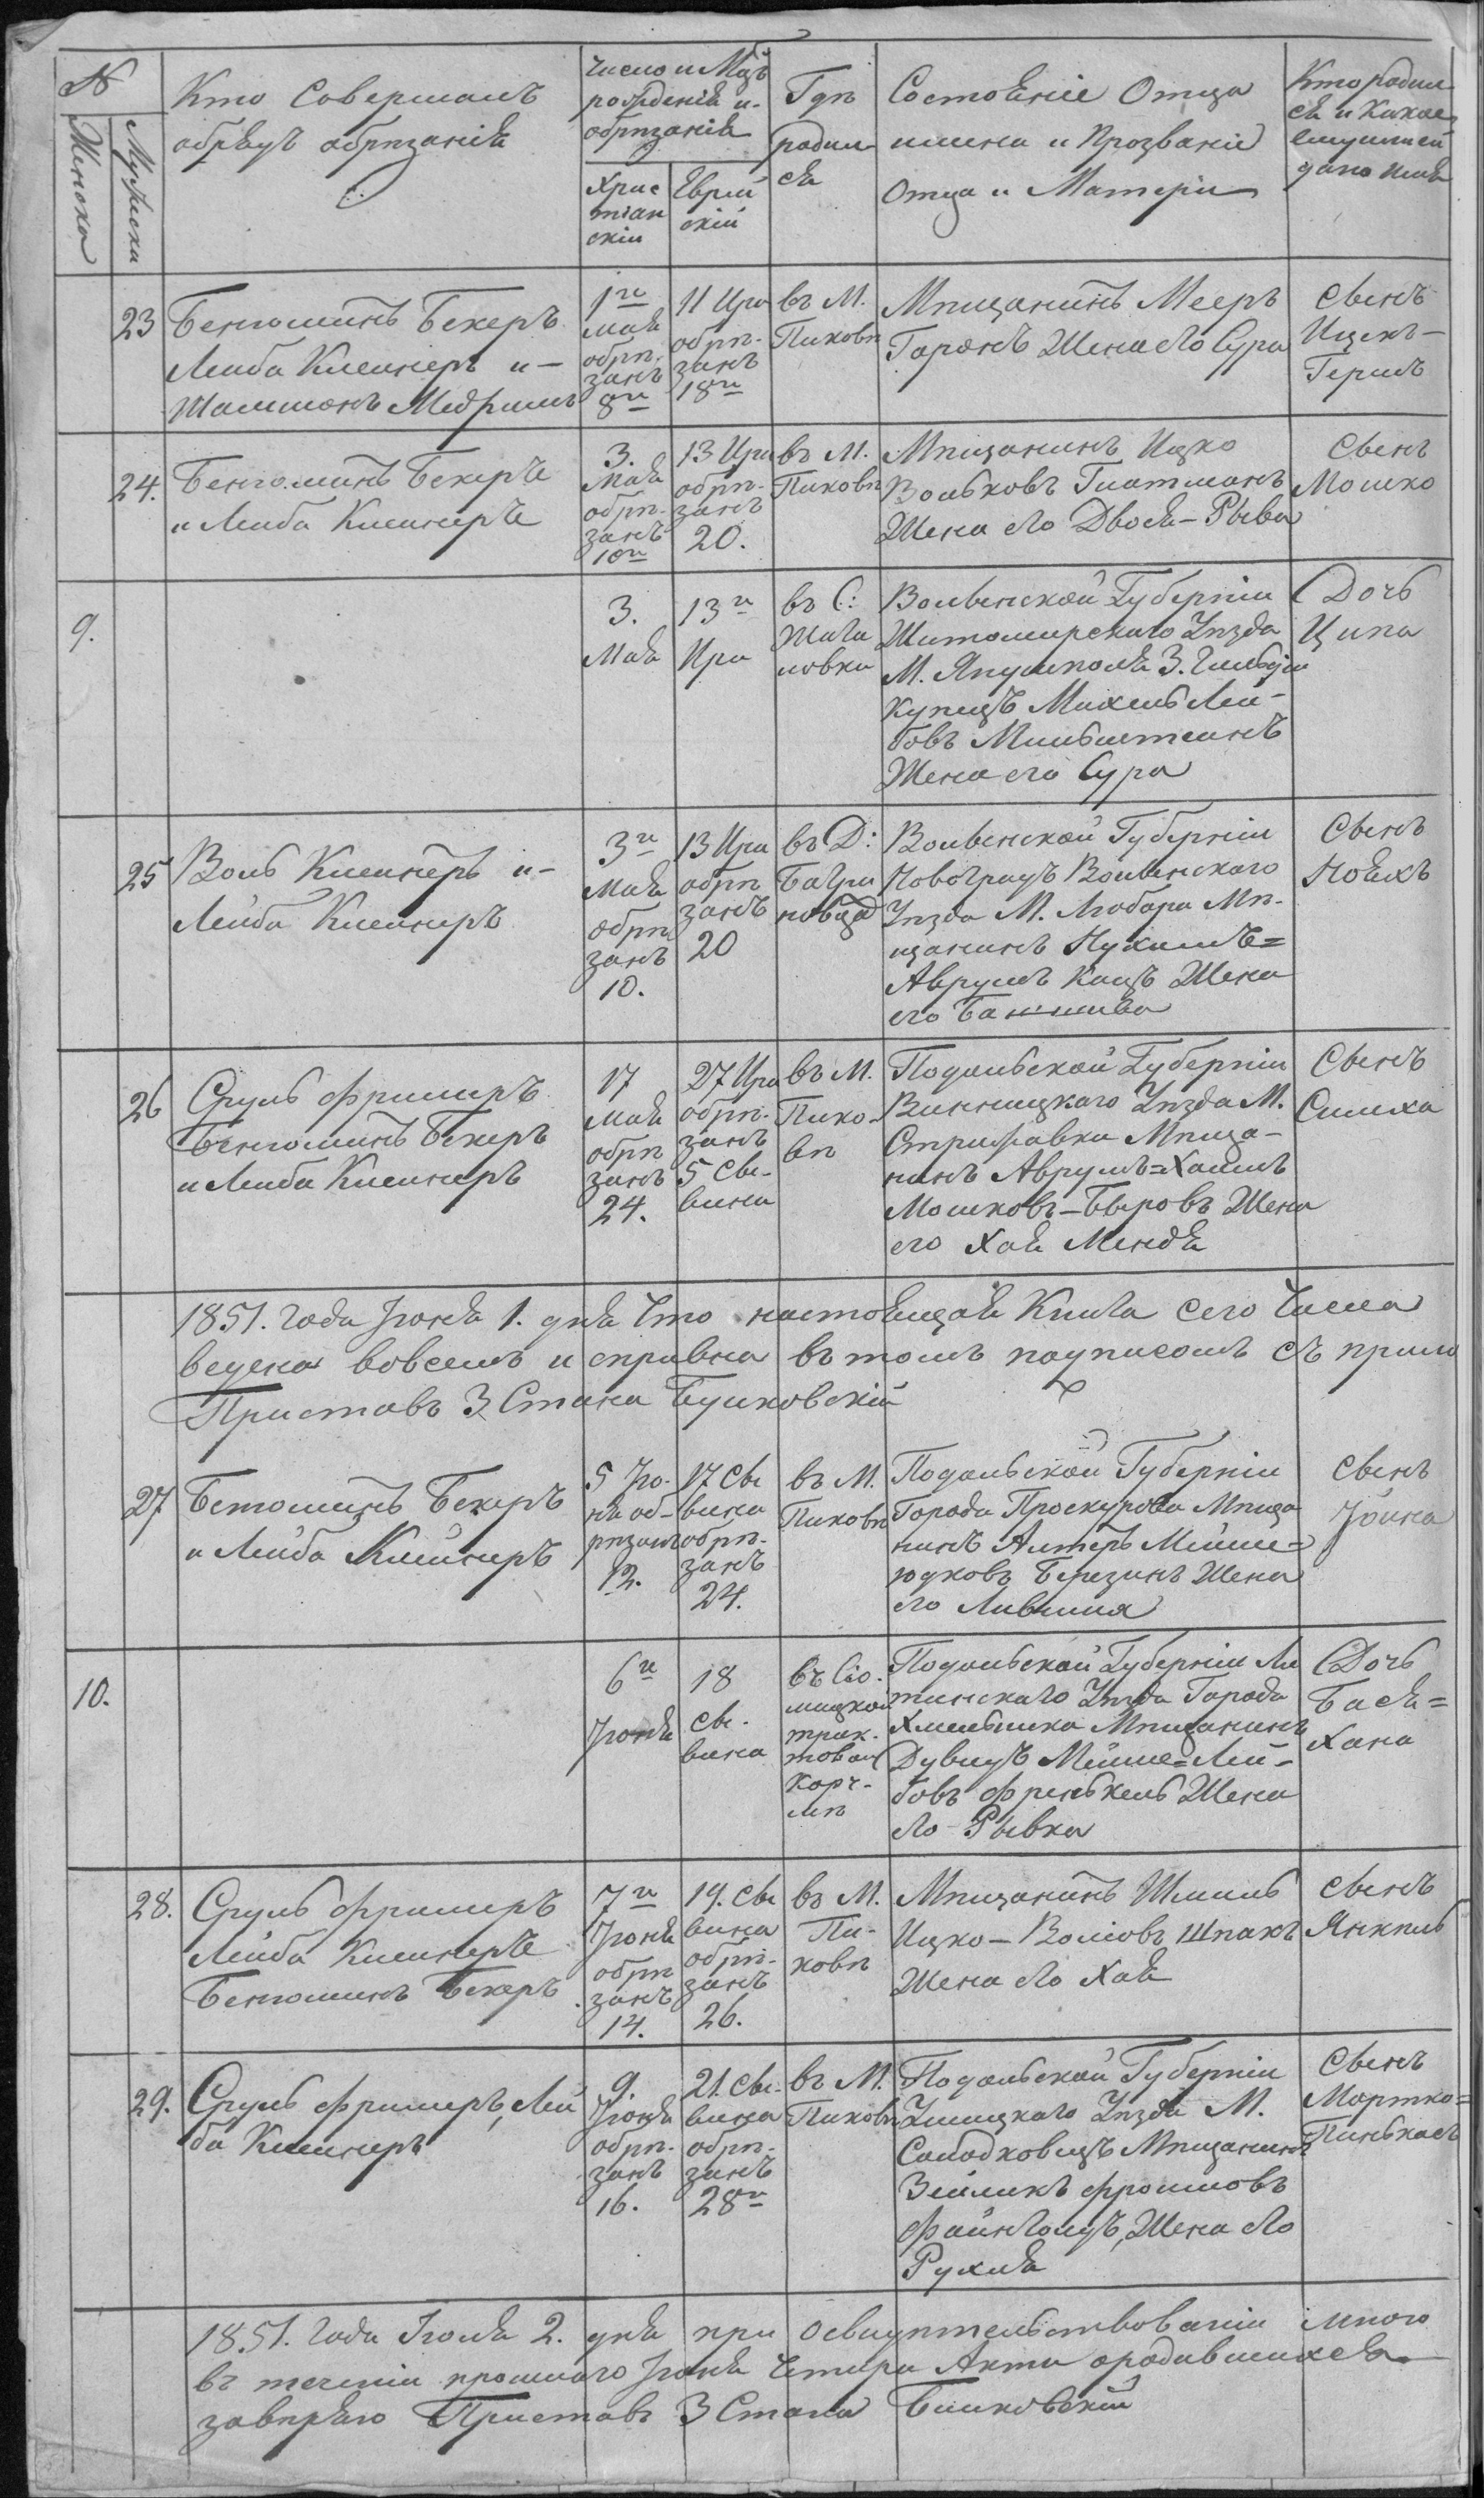 №
Женска
Мужеска
Кто Совершалъ
обрядъ обрѣзанія
Число и Мѣсъ
рожденія и
обрѣзанія
Хрис
тіан
скій
Еврей
скій
Гдѣ
родил
ся
Состояніе Отца
имена и Прозваніе
Отца и Матери
Кто родил
ся и какое
ему или ей
дано имя
23
Бенюминъ Бекеръ
Лейба Клейнеръ и -
Шамшонъ
1го
Мая
обрѣ-
занъ
8го
11 Ира
обрѣ-
занъ
18го
въ М.
Пиковѣ
Мѣщанинъ Мееръ
Горонъ Жена его Сура
Сынъ
Ицекъ -
Гершъ
24.
Бенюминъ Бекеръ
и Лейба Клейнеръ
3.
Мая
обрѣ-
занъ
10го
13 Ира
обрѣ-
занъ
20.
въ М.
Пиковѣ
Мѣщанинъ Ицко
Вольковъ Жена его Двося - Рыва
Сынъ
Мошко
9.
3.
Мая
13го
Ира
въ С:
Жига
ловки
Волынской Губерніи
Житомирскаго Уѣзда
М. Янушполя 3. Гильдіи
Купецъ Михель Лей-
бовъ Мильштеинъ
Жена его Сура
Дочь
Ципа
25
Воль Клейнеръ и -
Лейба Клейнеръ
3го
Мая
обрѣ
занъ
10.
13 Ира
обрѣ
занъ
20
въ Д:
Багри
новцѣ
Волынской Губерніи
Новоградъ Волынскаго
Уѣзда М. Любара Мѣ-
щанинъ Нухимъ=
Аврумъ Кацъ Жена
его Башшива
Сынъ
Нояхъ
26
Сруль Фримеръ
Бенюминъ Бекеръ
и Лейба Клейнеръ
17
Мая
обрѣ
занъ
24.
27 Ира
обрѣ-
занъ
5 Си-
вина
въ М.
Пико-
вѣ
Подольской Губерніи
Винницкаго Уѣзда М.
Стрижавки Мѣща-
нинъ Аврумъ=Хаимъ
Мошковъ - Быровъ Жена
его Хая Мендя
Сынъ
Симха
1851. года Іюня 1. дня что настоящая Книга сего Числа
ведена вовсемъ и справна въ томъ подписомъ съ прило
Приставъ 3 Стана Буйковскій
27
Бенюминъ Бекеръ
и Лейба Клейнеръ
5 Ію-
ня об-
рѣзанъ
12.
17 Си
вина
обрѣ-
занъ
24.
въ М.
Пиковѣ
Подольской Губерніи
Города Проскурова Мѣща
нинъ Алтеръ Мойше=
Юдковъ Березинъ Жена
его
Сынъ
Іойна
10.
6го
Іюня
18
Си-
вина
въ Сіо-
мацкой
трак-
товой
Корч-
мѣ
Подольской Губерніи Ли
тинскаго Уѣзда Города
Хмельника Мѣщанинъ
Дувидъ Мойше=Лей-
бовъ Френкель Жена
его Рывка
Дочь
Бася=
Хана
28.
Сруль Фримеръ
Лейба Клейнеръ
Бенюминъ Бекеръ
7го
Іюня
обрѣ
занъ
14.
19. Си
вина
обрѣ-
занъ
26.
въ М.
Пи-
ковѣ
Мѣщанинъ Шмиль
Ицко - Волковъ Шпакъ
Жена его Хая
Сынъ
Янкель
29.
Сруль Фримеръ, Лей
ба Клейнеръ
9.
Іюня
обрѣ-
занъ
16.
21. Си-
вина
обрѣ-
занъ
28го
въ М.
Пиковѣ
Подольской Губерніи
Ушицкаго Уѣзда М.
Солодковецъ Мѣщанинъ
Зейликъ Фроимовъ
Файнгольдъ, Жена его
Рухля
Сынъ
Мортко=
Пинькасъ
1851. года Іюля 2. дня при освидѣтельствованіи мною
въ теченіи прошлаго Іюня Четыри Акта ородившихся
завѣряю Приставъ 3 Стана Буйковскій